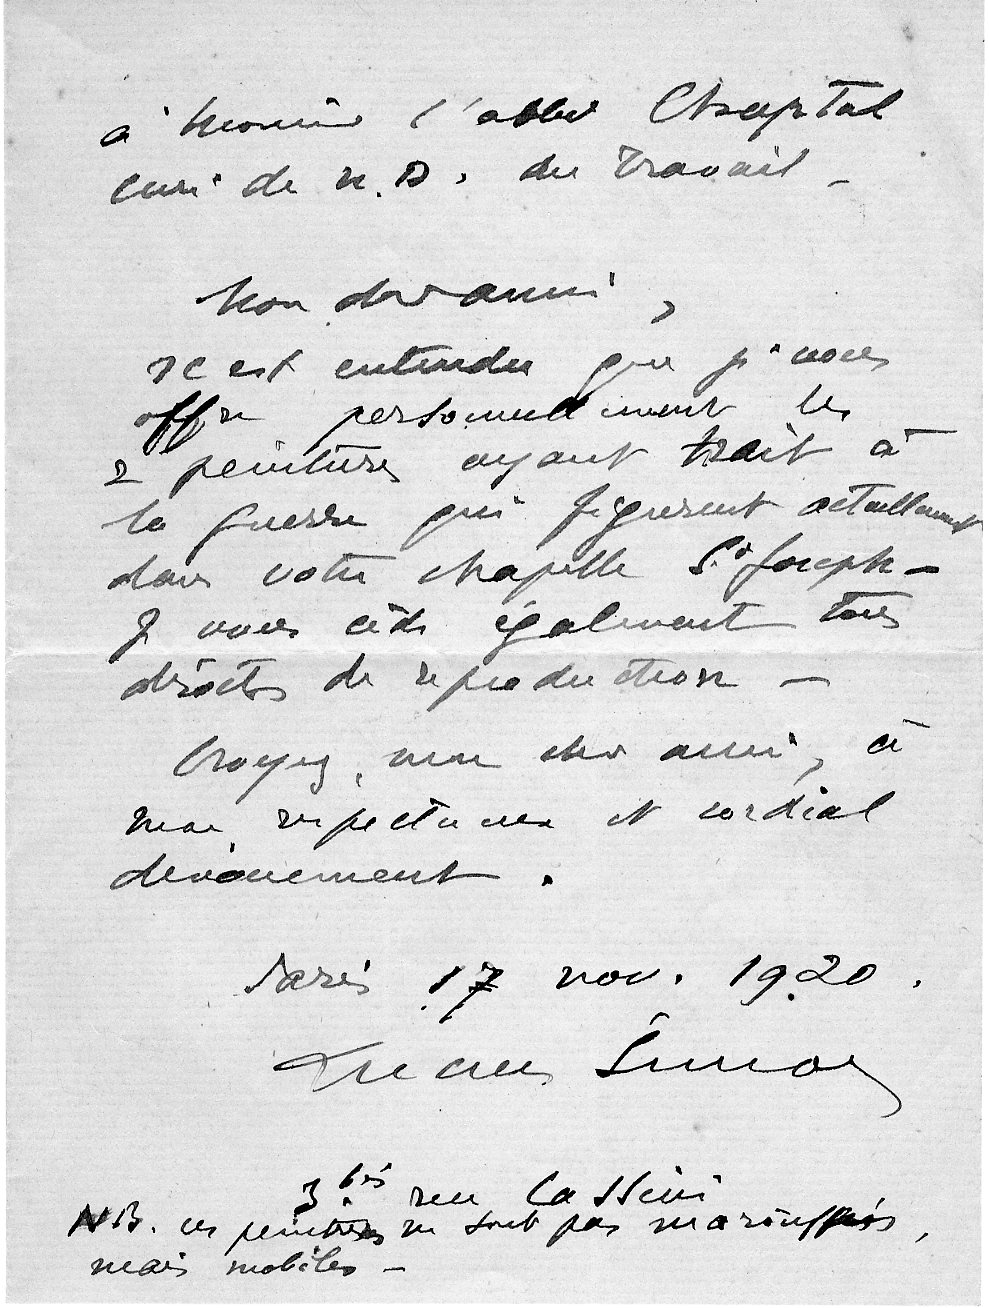 à Monsieur l'abbé Chaptal
curé de N.D. du Travail –
Mon cher ami,
Il est entendu que je vous
offre personnellement les
2 peintures ayant trait à
la guerre qui figurent actuellement
dans votre chapelle St Joseph –
Je vous cède également tous
droits de reproduction –
Croyez, mon cher ami, à
mon respectueux et cordial
dévouement.
Paris 17 nov. 1920.
Lucien Simon
3 bis rue Cassini
NB. ces peintures ne sont pas marouflées,
mais mobiles –